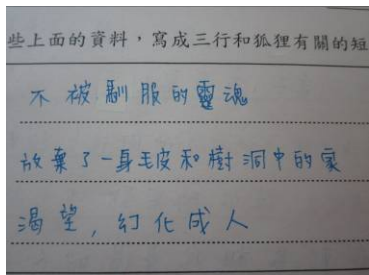 些上面的資料，寫成三行和狐狸有關的短
不被馴服的靈魂
放棄了一身毛皮和樹洞中的家
渴望，幻化成人